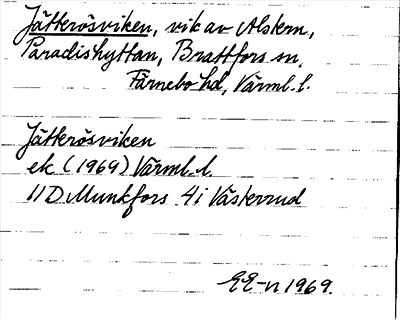 Jätterösviken, vik av Alstern,
Paradishyttan, Brattfors sn,
Färnebo hd, Värml. l.
Jätterösviken
ek (1969) Värml. l.
11 D Munkfors 4 i Västerrud
EE-n 1969.